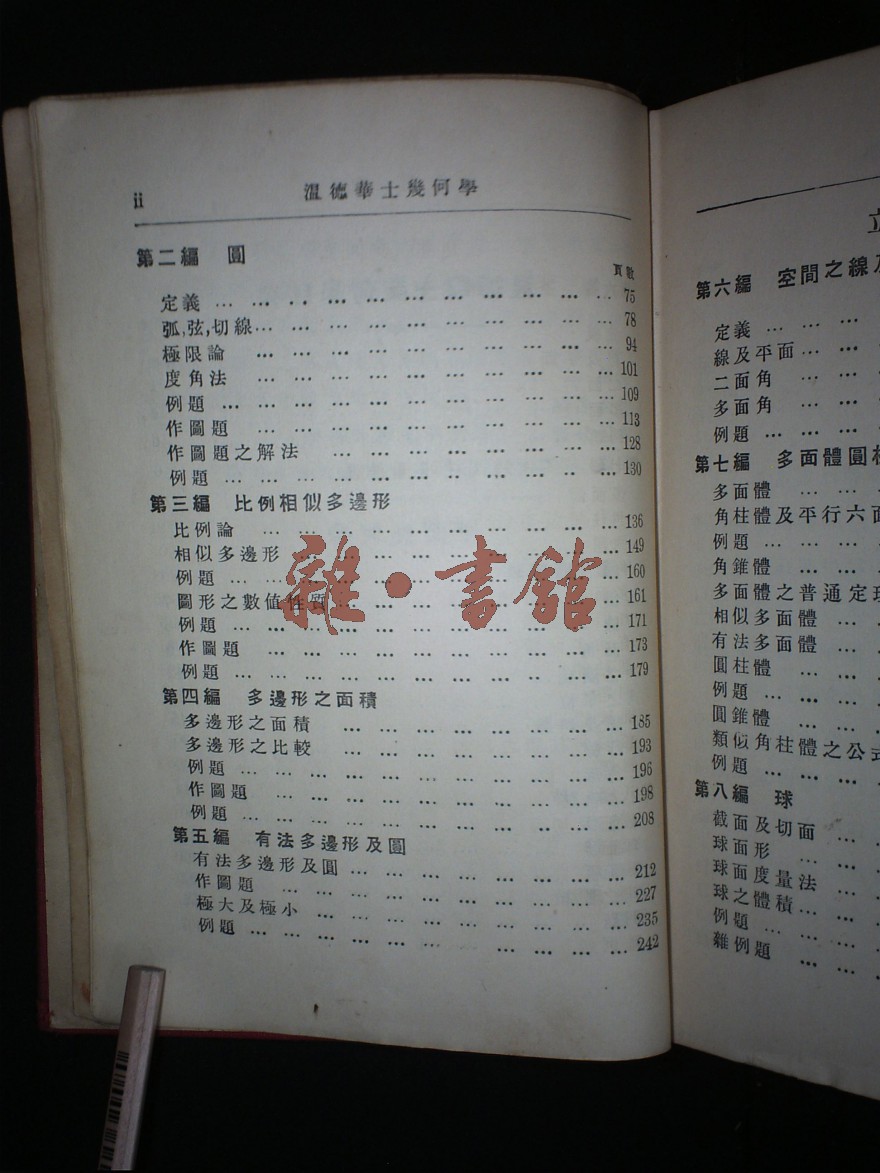 ii 溫德華士幾何學
第二編 圓
頁數
定義 … … … … … … … … … … … 75
弧,弦,切線… … … … … … … … … … 78
極限論 … … … … … … … … … … 94
度角法 … … … … … … … … … … 101
例題 … … … … … … … … … … … 109
作圖題 … … … … … … … … … … 113
作圖題之解法 … … … … … … … … 128
例題 … … … … … … … … … … … 130
第三編 比例相似多邊形
比例論 … … … … … … … … … … 136
相似多邊形 … … … … … … … … … 149
例題 … … … … … … … … … … … 160
圖形之數值性質 … … … … … … … … 161
例題 … … … … … … … … … … … 171
作圖題 … … … … … … … … … … 173
例題 … … … … … … … … … … … 179
第四編 多邊形之面積
多邊形之面積 … … … … … … … … 185
多邊形之比較 … … … … … … … … 193
例題 … … … … … … … … … … … 196
作圖題 … … … … … … … … … … 198
例題 … … … … … … … … … … … 208
第五編 有法多邊形及圓
有法多邊形及圓 … … … … … … … … 212
作圖題 … … … … … … … … … … 227
極大及極小 … … … … … … … … … 235
例題 … … … … … … … … … … … 242
雜·書館
立
第六編 空間之線及
定義 … … …
線及平面 … … …
二面角 … … …
多面角 … … …
例題 … … … …
第七編 多面體圓柱
多面體 … … …
角柱體及平行六面
例題 … … … …
角錐體 … … …
多面體之普通定理
相似多面體 … …
有法多面體 … …
圓柱體 … … …
例題 … … … …
圓錐體 … … …
類似角柱體之公式
例題 … … … …
第八編 球
截面及切面 … …
球面形 … … …
球面度量法 … …
球之體積 … … …
例題 … … … …
雜例題 … … …